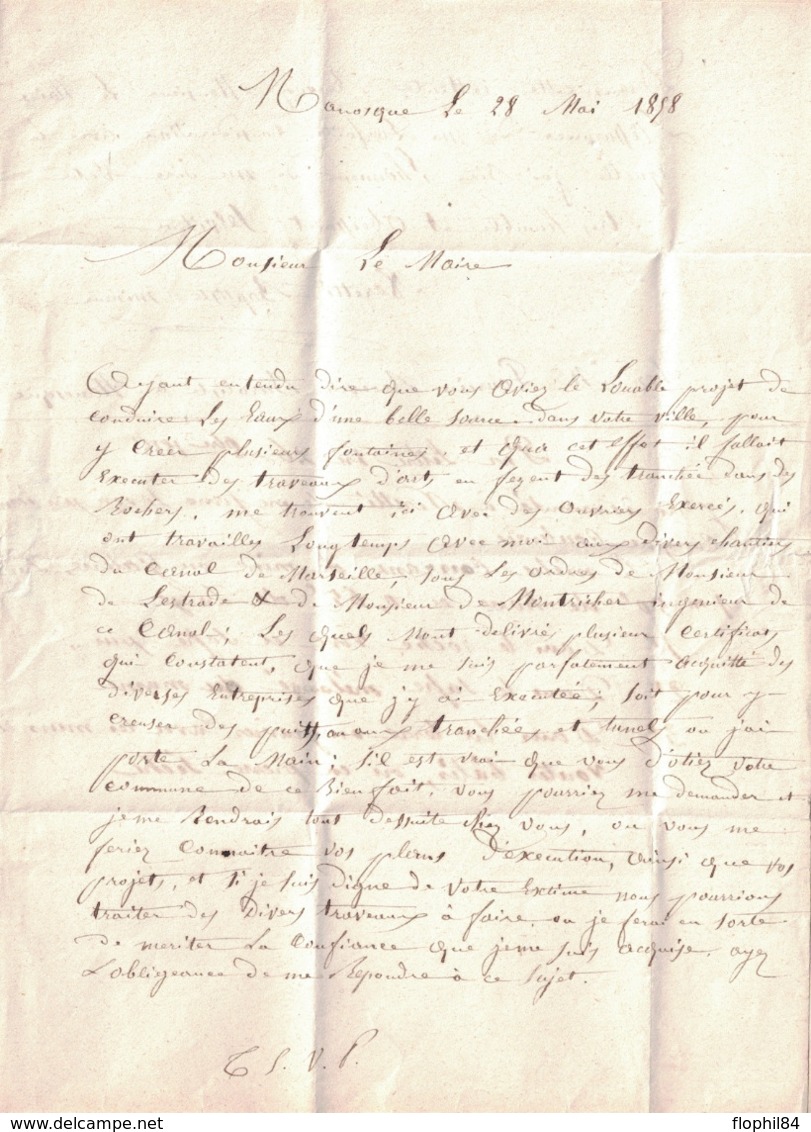 Manosque Le 28 Mai 1858
Monsieur Le Maire
Ayant entendu dire que vous aviez le Louable projet de
conduire Les Eaux d'une belle source dans votre ville, pour
y Creer plusieurs fontaines, et qu'a cet effet il fallait
Executer des traveaux d'art, en fezent des tranchée dans des
Rochers, me trouvent ici avec des ouvriers Exercés, qui
ont travailles Longtemps avec moi aux divers chantiers
du Canal de Marseille, sous Les ordres de Monsieur
de Lestrade & de Monsieur de Montricher ingenieur de
ce Canal; Les quels mont delivrés plusieur certificats
qui Constatent, que je me suis parfatement acquitté des
diverses Entreprises que j'y ai Executée; soit pour y
Creuser des puits, ou aux tranchées et tunels ou j'ai
porte La Main; s'il est vrai que vous d'otiez votre
commune de ce Bien fait, vous pourriez me demander et
jeme Rendrais tout dessuite chez vous, ou vous me
feriez Connaitre vos plans d'éxecution, ainsi que vos
projets, et si je suis digne de votre Extime nous pourrions
traiter des Divers traveaux à faire, ou je ferai en sorte
de meriter La Confiance que jeme suis acquise, ayez
L'obligeance de me Repondre à ce sujet.
T S. V. P.
flophil84